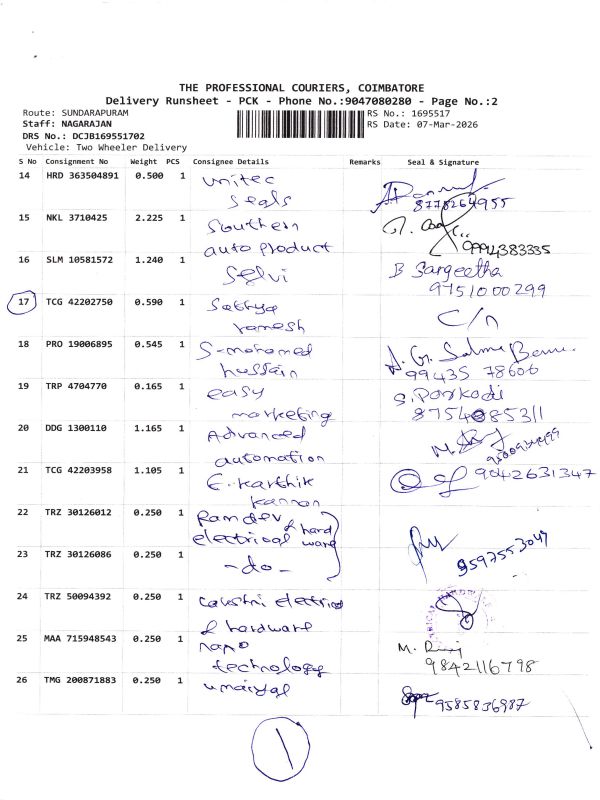 THE PROFESSIONAL COURIERS, COIMBATORE
Delivery Runsheet - PCK - Phone No.:9047080280 - Page No.:2
Route: SUNDARAPURAM
RS No.: 1695517
Staff: NAGARAJAN
RS Date: 07-Mar-2026
DRS No.: DCJB169551702
Vehicle: Two Wheeler Delivery
S No Consignment No Weight PCS Consignee Details Remarks Seal & Signature
14 HRD 363504891 0.500 1 unitec
seals
8778264955
15 NKL 3710425 2.225 1 Southern
auto product
9994383335
16 SLM 10581572 1.240 1 Selvi
B Sargeetha
9751000299
17 TCG 42202750 0.590 1 Sathya
ramesh
C/n
18 PRO 19006895 0.545 1 S-mohamed
hussain
99435 78606
19 TRP 4704770 0.165 1 easy
marketing
S. Porkodi
8754085311
20 DDG 1300110 1.165 1 Advanced
automation
21 TCG 42203958 1.105 1 E. karthik
kannan
9042631347
22 TRZ 30126012 0.250 1 Ramdev & hard
electrical ware
23 TRZ 30126086 0.250 1 -do-
9597553049
24 TRZ 50094392 0.250 1 electrical
& hardware
25 MAA 715948543 0.250 1 nano
technology
9842116798
26 TMG 200871883 0.250 1 umaiyal
9585836987
1